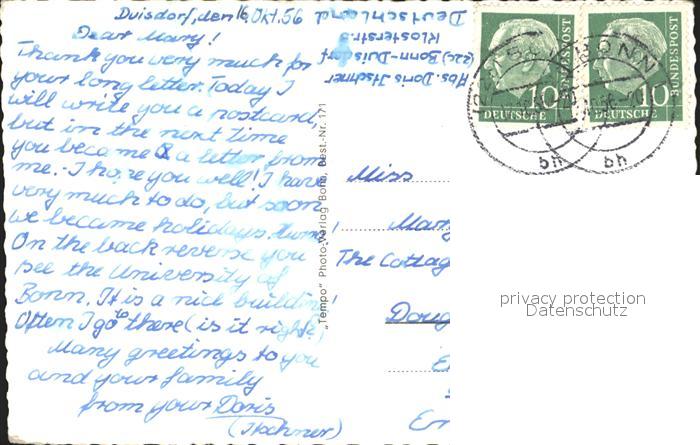 Duisdorf, den 16. Okt. 56
Dear Mary!
Thank you very much for
your long letter. Today I
will write you a postcard,
but in the next time
you became a letter from
me. I hope you well! I have
very much to do, but soon
we became holidays.
On the back reverse you
see the University of
Bonn. It is a nice building!
Often I go to there (is it right?)
Many greetings to you
and your family
from your Doris
Abs. Doris
(22c) Bonn-Duisdorf
Klosterstr.
Deutschland
"Tempo" Photo-Verlag Bonn, Best.-Nr. 171
Miss
Mary
The Cottag
Doug
E
En
10
DEUTSCHE
BUNDESPOST
10
DEUTSCHE
BUNDESPOST
BONN
bh
bh
privacy protection
Datenschutz